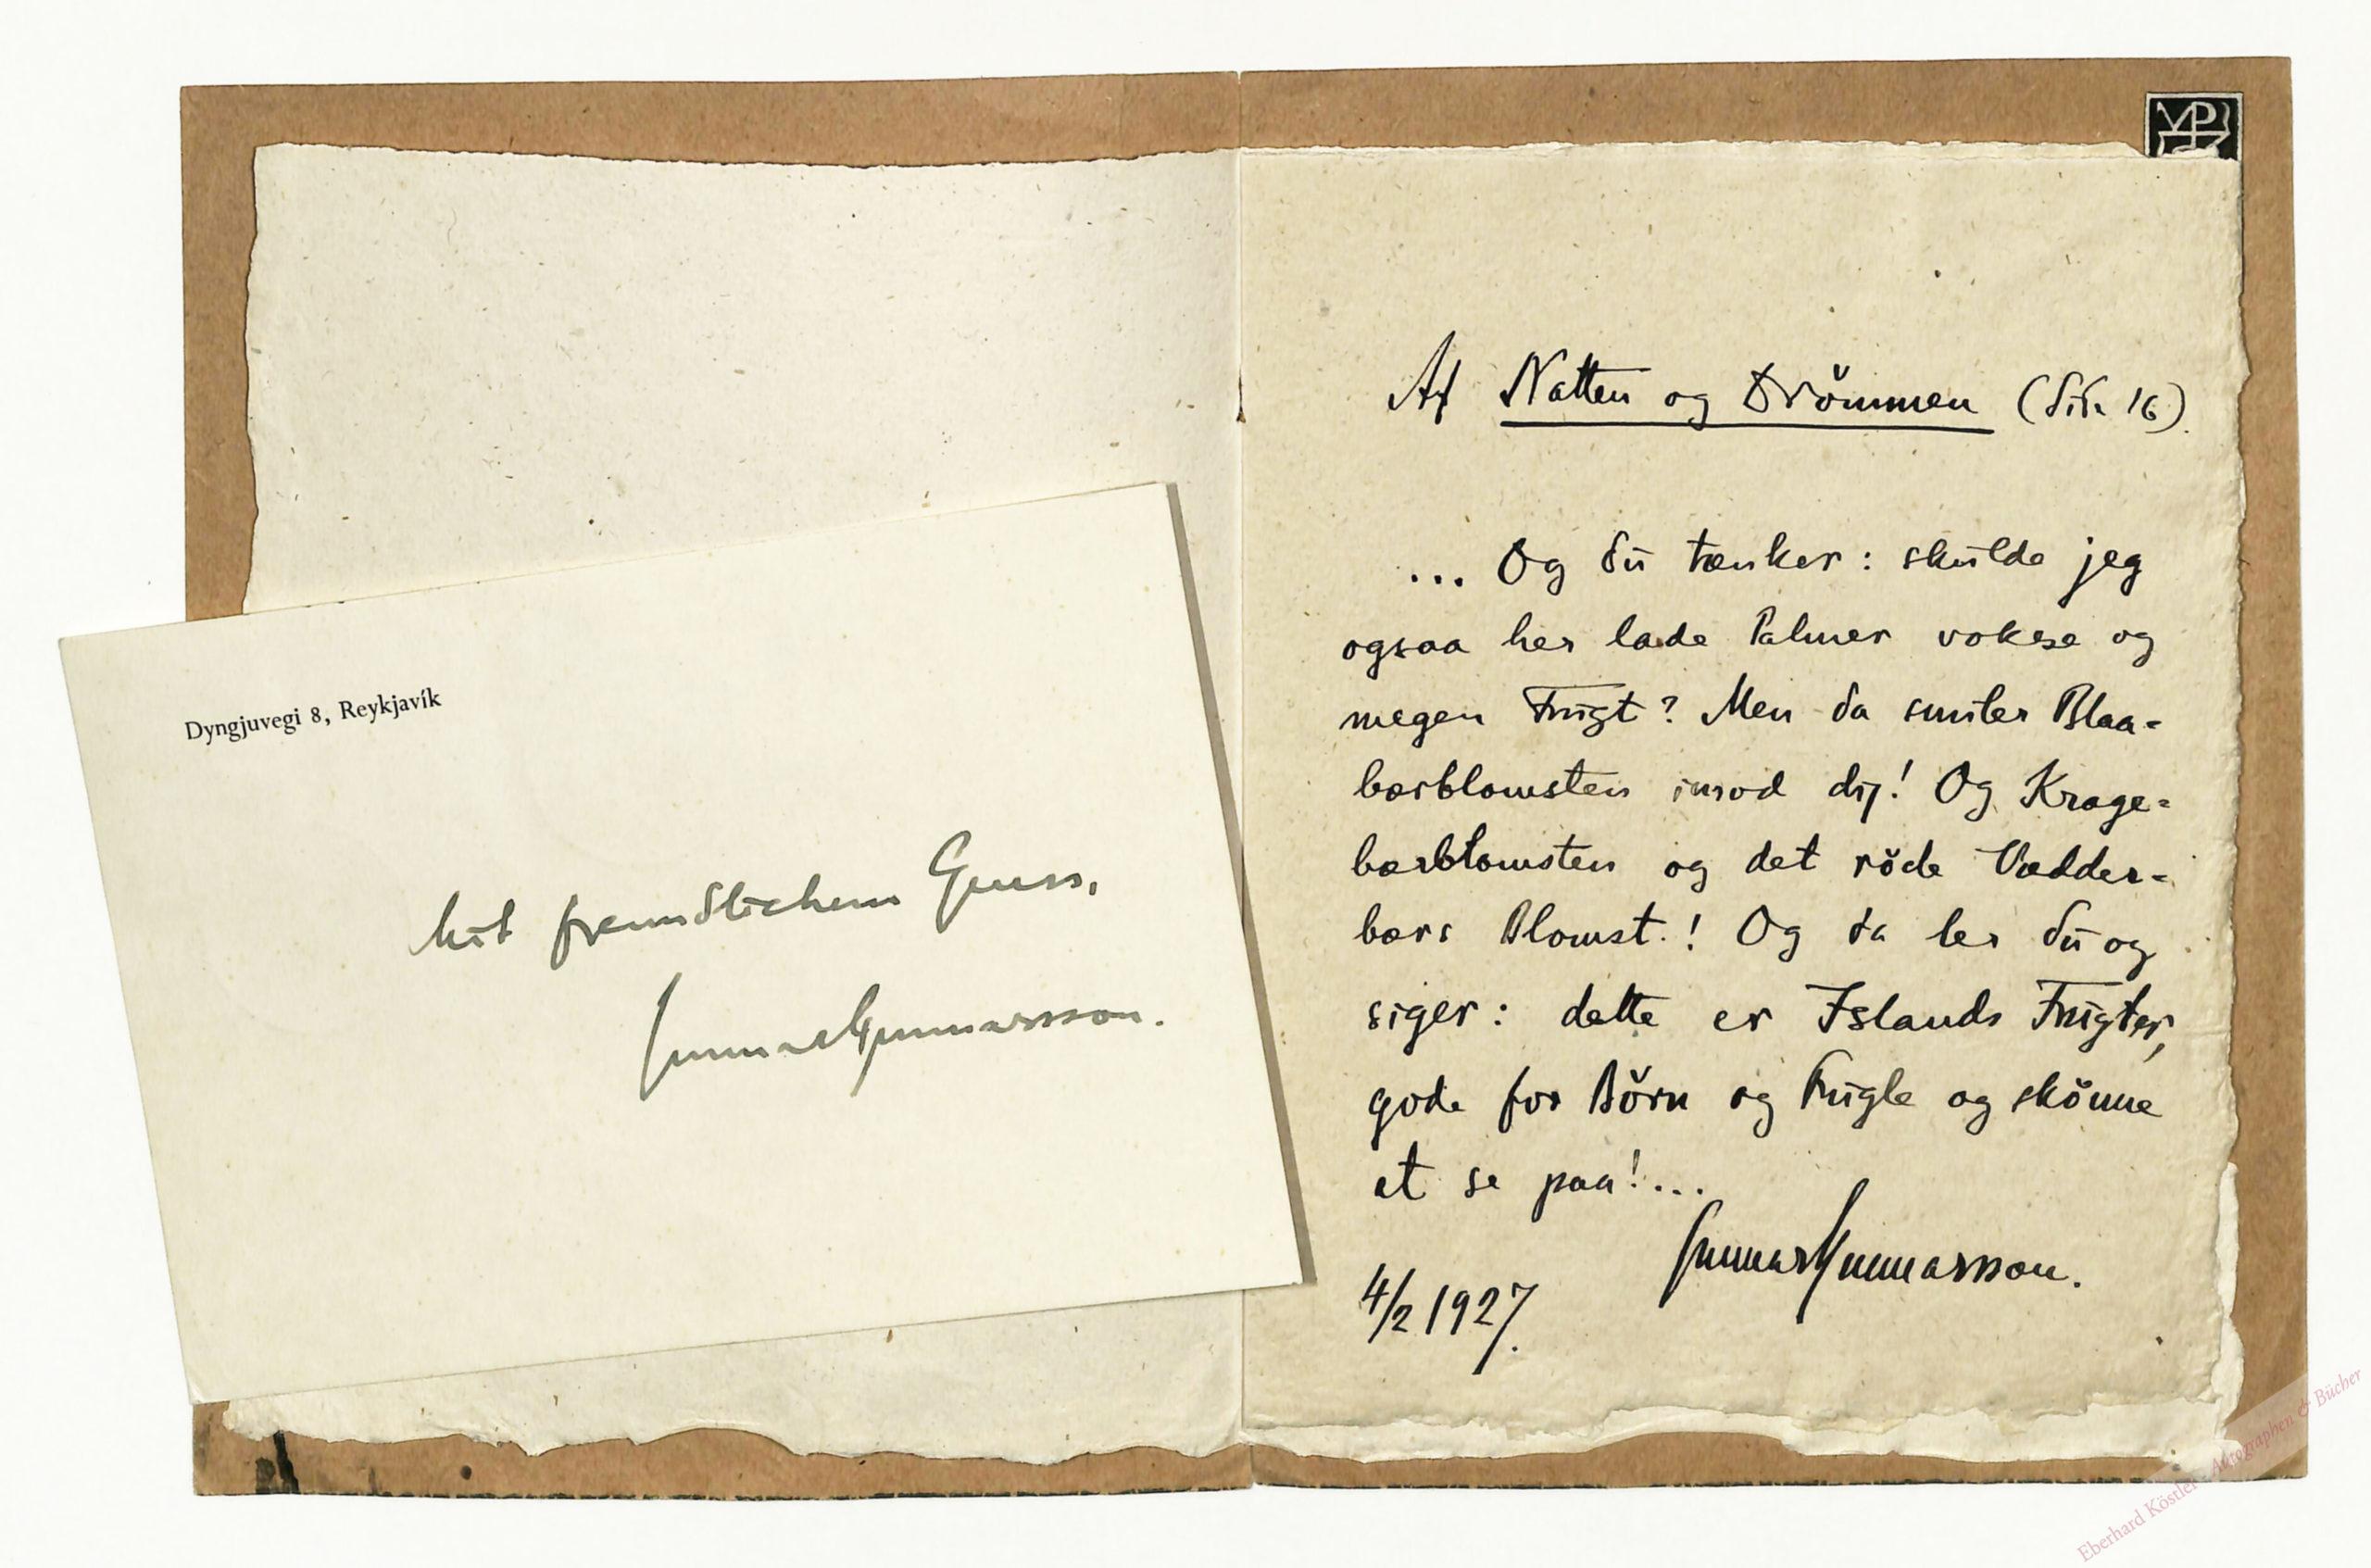 Dyngjuvegi 8, Reykjavík
Mit freundlichem Gruss,
Gunnar Gunnarsson.
VP
Af Natten og Drömmen (Sid. 16).
... Og du tænker: skulde jeg
ogsaa her lade Palmer vokse og
megen Frugt? Men da smiler Blaa-
bærblomsten imod dig! Og Krage-
bærblomsten og det röde Vædder-
bærs Blomst.! Og da ler du og
siger: dette er Islands Frugter,
gode for Börn og Fugle og skönne
at se paa!...
Gunnar Gunnarsson.
4/2 1927.
Eberhard Köstler Autographen & Bücher